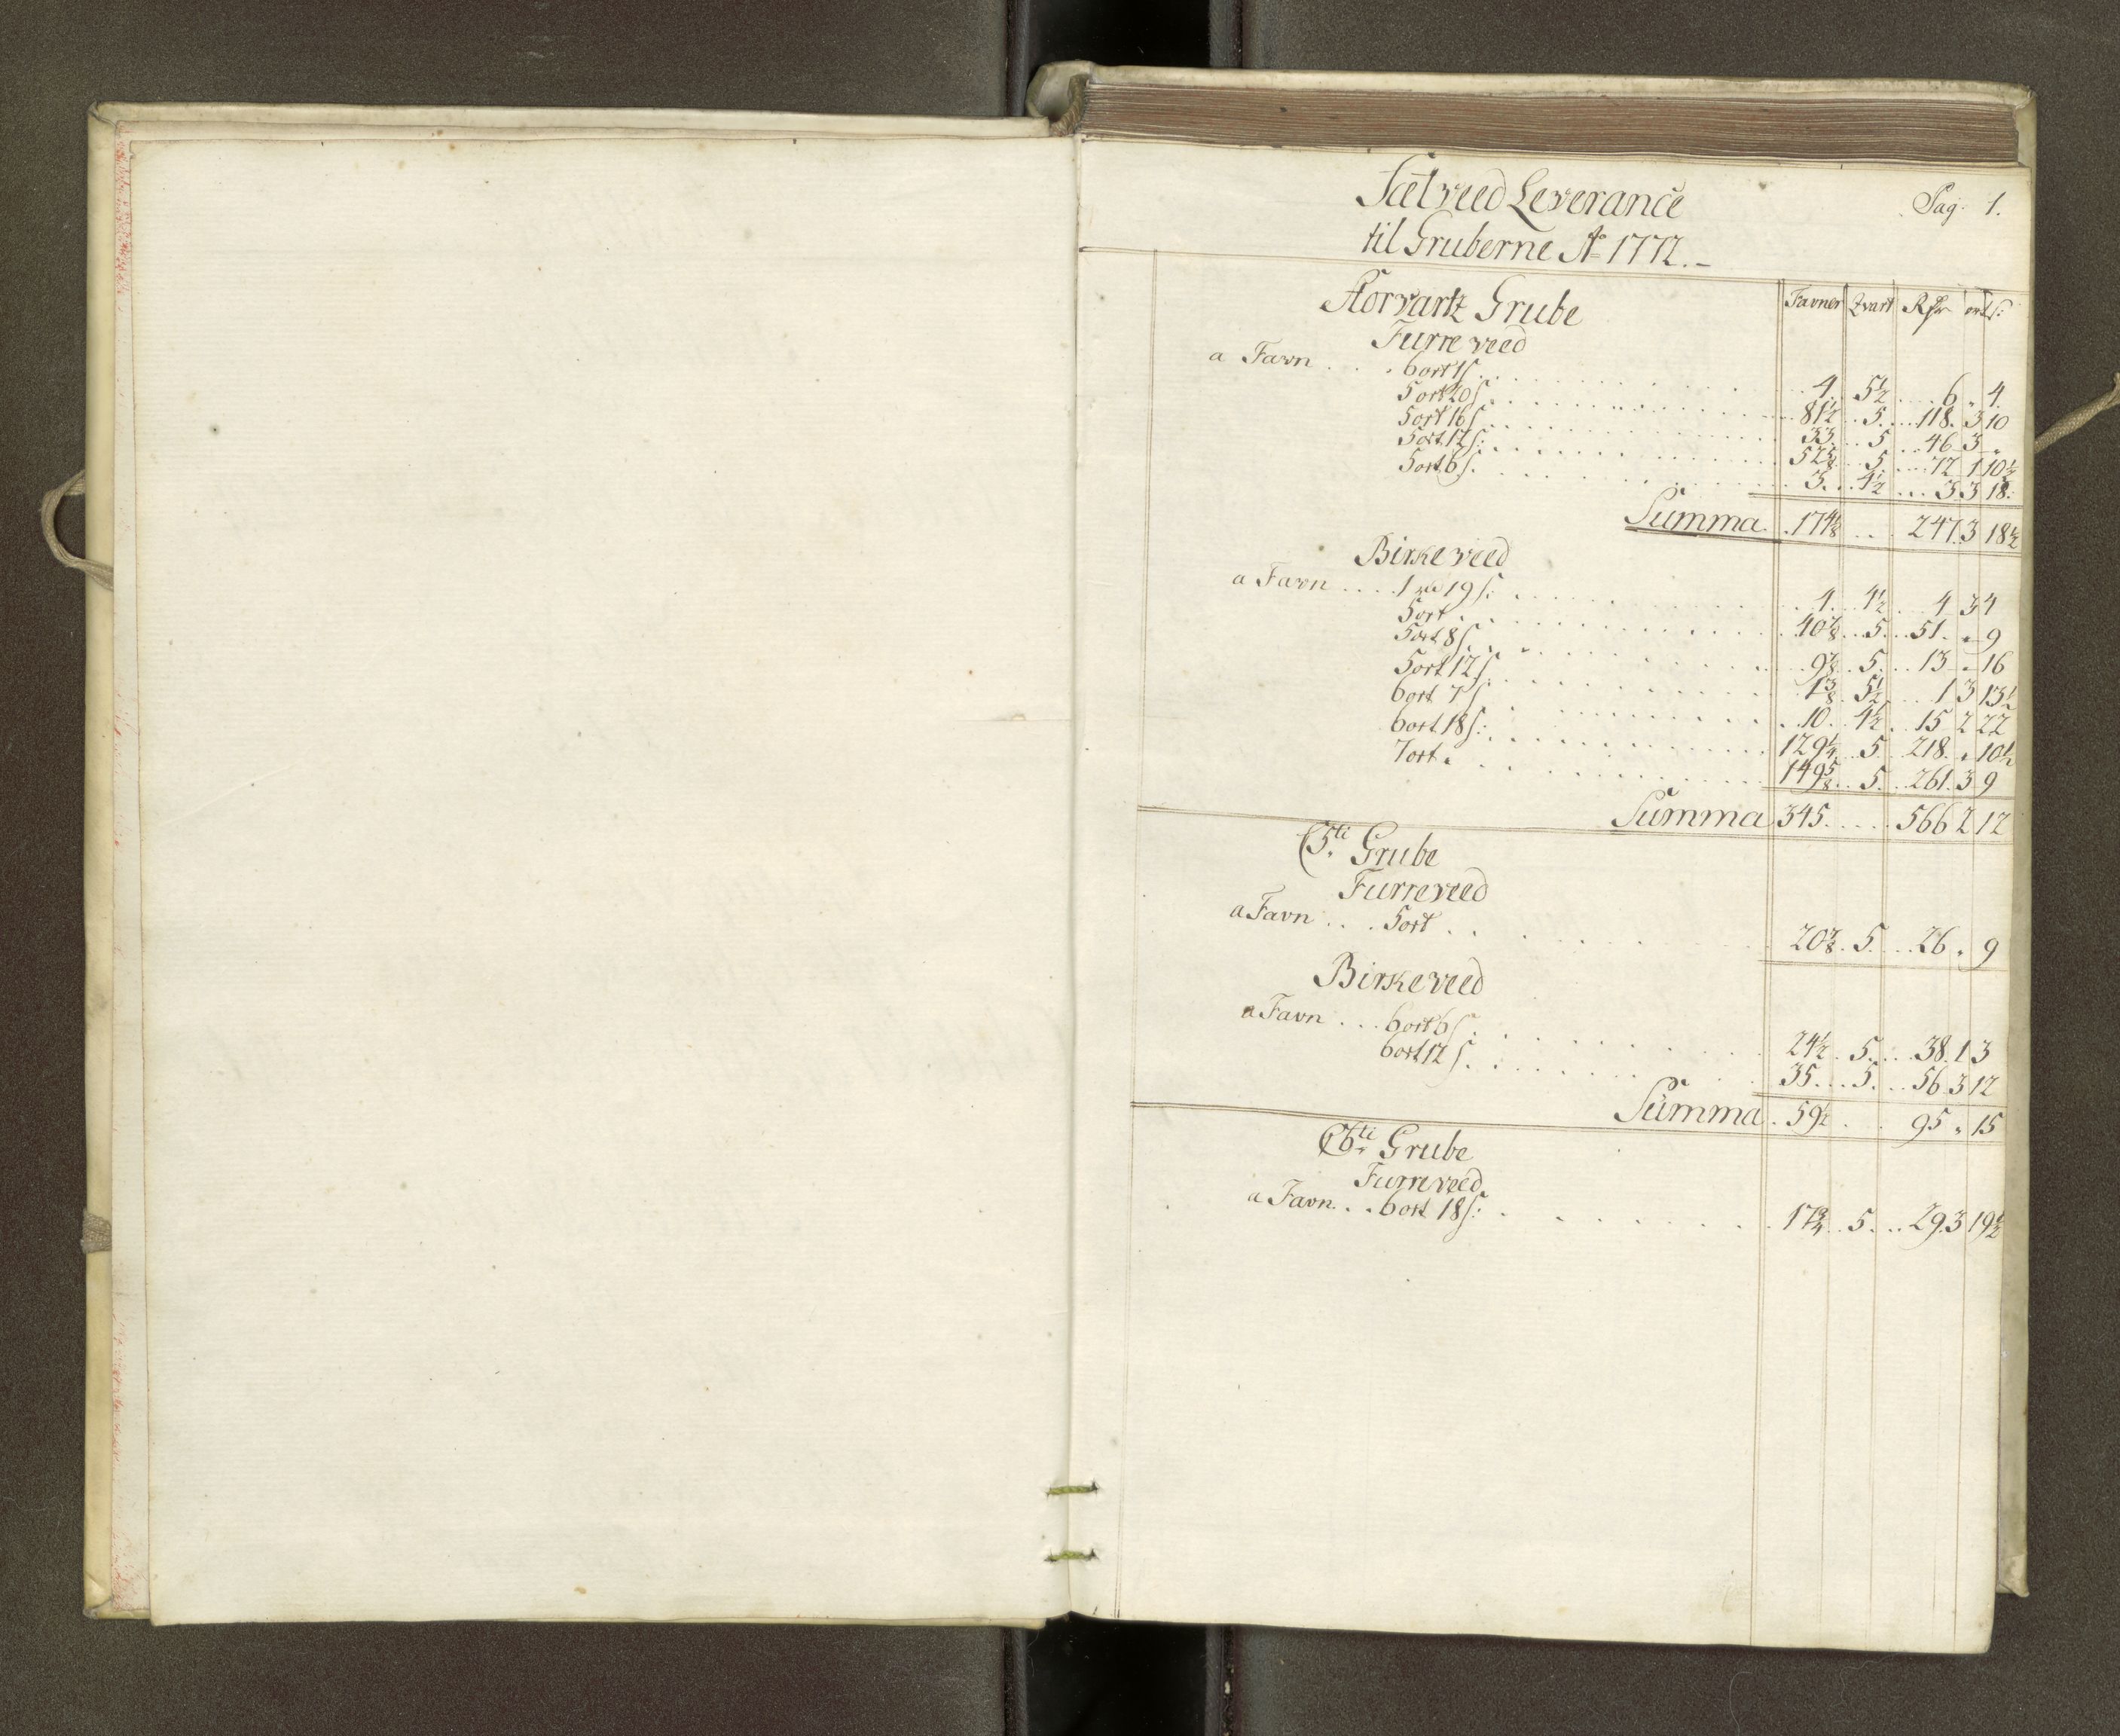 Sætveed Leverance Pag. 1.
til Gruberne Ao 1772.
Storvartz Grube Favner Qvart Rdr ort s:
Furreveed
a Favn . . . 6 ort 1 s . . . 4. 5½ . . 6 „ 4.
5 ort 20 s . . . 81½ . . 5. . . 118. 3 10
5 ort 16 s . . . 33. . . 5 . . 46 3 „
5 ort 12 s: . . . 52⅝ . . 5. . . 72 1 10½
5 ort 6 s. . . . 3. . . 4½ . . . 3 3 18.
Summa . 174⅛ . . . 247. 3 18½
Birkeveed
a Favn . . . . 1 rd 19 s: . . . 4. . . 4½ . . 4 3 4
5 ort . . . 40⅞ . . 5. . . 51. „ 9
5 ort 8 s. . . . 9⅞ . . 5. . . 13 „ 16
5 ort 12 s. . . . 1⅜ . . 5½ . . . 1 3 13½
6 ort 7 s . . . 10. . . 4½ . . 15 2 22
6 ort 18 s: . . . 129¼ . . 5. . . 218. „ 10½
7 ort „ . . . 149⅝ . . 5. . . 261. 3 9
Summa 345. . . . . 566 2 12
5ti Grube
Furreveed
a Favn . . . 5 ort . . . 20⅞ . . 5. . . 26 „ 9
Birkeveed
a Favn . . . 6 ort 6 s . . . 24½ . . 5. . . 38. 1 3
6 ort 12 s . . . 35. . . 5. . . 56 3 12
Summa . 59½ . . 95 „ 15
6ti Grube
Furreveed
a Favn . . 6 ort 18 s: . . . 17¾ . . 5. . . 29. 3 19½